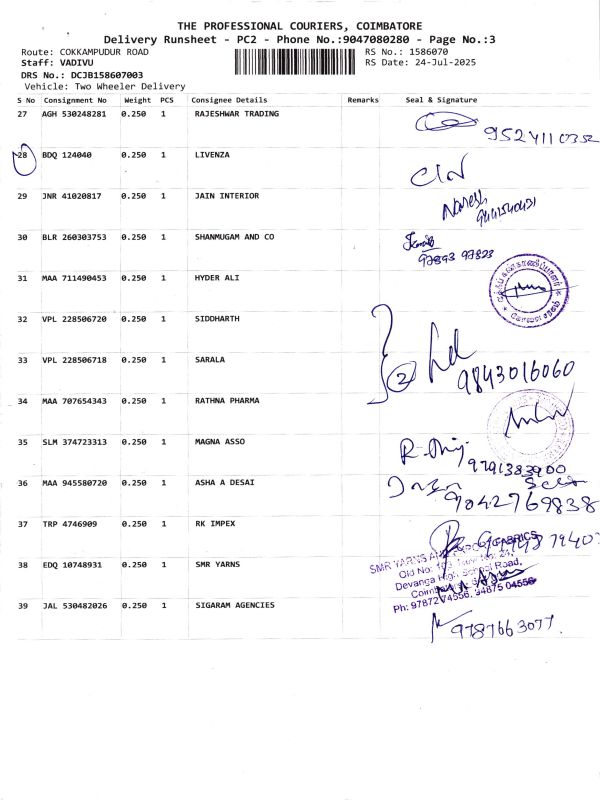 THE PROFESSIONAL COURIERS, COIMBATORE
Delivery Runsheet - PC2 - Phone No.:9047080280 - Page No.:3
Route: COKKAMPUDUR ROAD RS No.: 1586070
Staff: VADIVU RS Date: 24-Jul-2025
DRS No.: DCJB158607003
Vehicle: Two Wheeler Delivery
S No Consignment No Weight PCS Consignee Details Remarks Seal & Signature
27 AGH 530248281 0.250 1 RAJESHWAR TRADING
9524110352
28 BDQ 124040 0.250 1 LIVENZA
29 JNR 41020817 0.250 1 JAIN INTERIOR
Naresh
30 BLR 260303753 0.250 1 SHANMUGAM AND CO
97893 97823
31 MAA 711490453 0.250 1 HYDER ALI
32 VPL 228506720 0.250 1 SIDDHARTH
33 VPL 228506718 0.250 1 SARALA
2 9843016060
34 MAA 707654343 0.250 1 RATHNA PHARMA
35 SLM 374723313 0.250 1 MAGNA ASSO
9791383900
36 MAA 945580720 0.250 1 ASHA A DESAI
9042769838
37 TRP 4746909 0.250 1 RK IMPEX
38 EDQ 10748931 0.250 1 SMR YARNS
SMR YARNS FABRICS
Old No:
Devanga High School Road,
Ph: 97872 74556, 94875 04556
39 JAL 530482026 0.250 1 SIGARAM AGENCIES
9787663077.